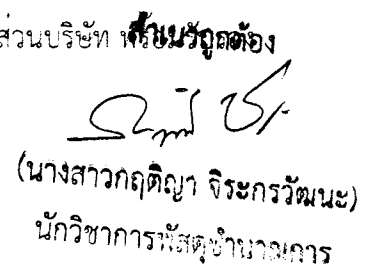 ส่วนบริษัท
สำเนาถูกต้อง
(นางสาวกฤติญา จิระกรวัฒนะ)
นักวิชาการพัสดุชำนาญการ